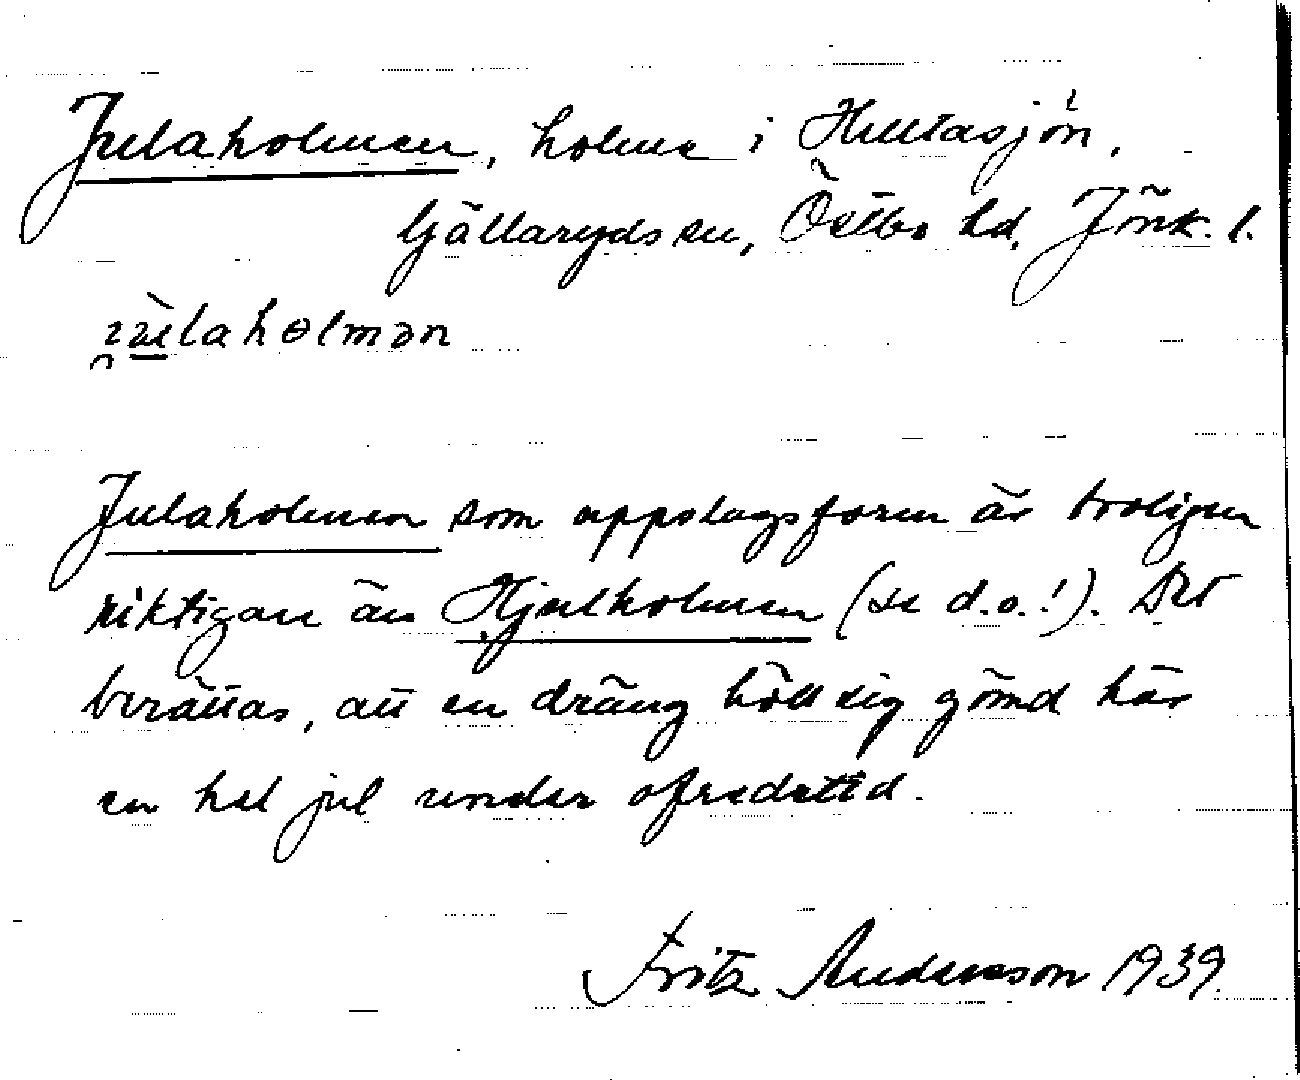 Julaholmen, holme i Hultasjön,
Gällaryds sn, Östbo hd, Jönk. l.
Julaholmen som uppslagsform är troligen
riktigare än Hjulholmen (se d.o.!). Det
berättas, att en dräng höll sig gömd här
en hel jul under ofredstid.
Fritz Andersson 1939.